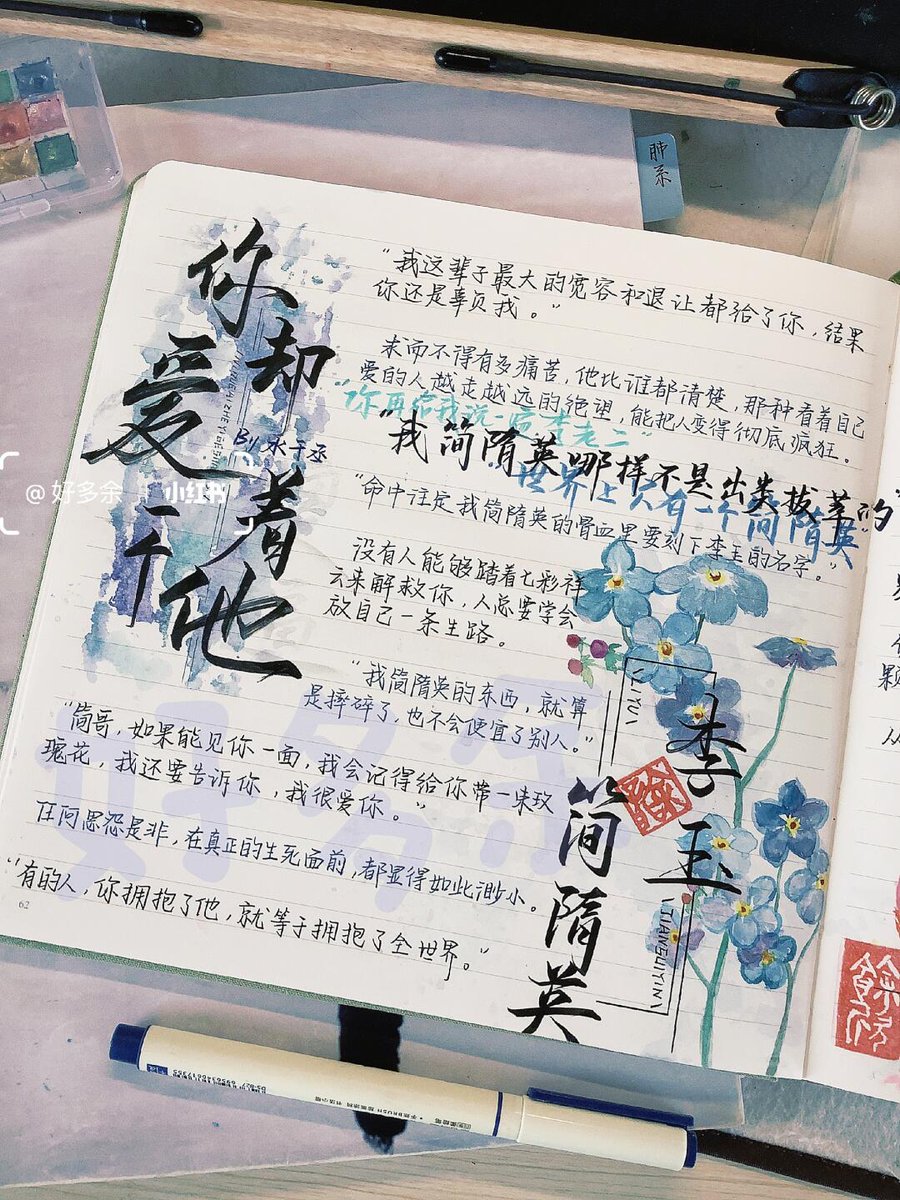 肺系
你却
爱着
一个
他
By 水千丞
@好多余 小红书
"我这辈子最大的宽容和退让都给了你，结果
你还是辜负我。"
求而不得有多痛苦，他比谁都清楚，那种看着自己
爱的人越走越远的绝望，能把人变得彻底疯狂。
"你再给我说一遍李老二"
"我简隋英哪样不是出类拔萃的"
世界上只有一个简隋英"
"命中注定我简隋英的骨血里要刻下李玉的名字。"
没有人能够踏着七彩祥
云来解救你，人总要学会
放自己一条生路。
"我简隋英的东西，就算
是摔碎了，也不会便宜了别人。"
"简哥，如果能见你一面，我会记得给你带一味玫
瑰花，我还要告诉你，我很爱你。"
任何恩怨是非，在真正的生死面前，都显得如此渺小。
"有的人，你拥抱了他，就等于拥抱了全世界。"
62
好多余
LIYU
李玉
简隋英